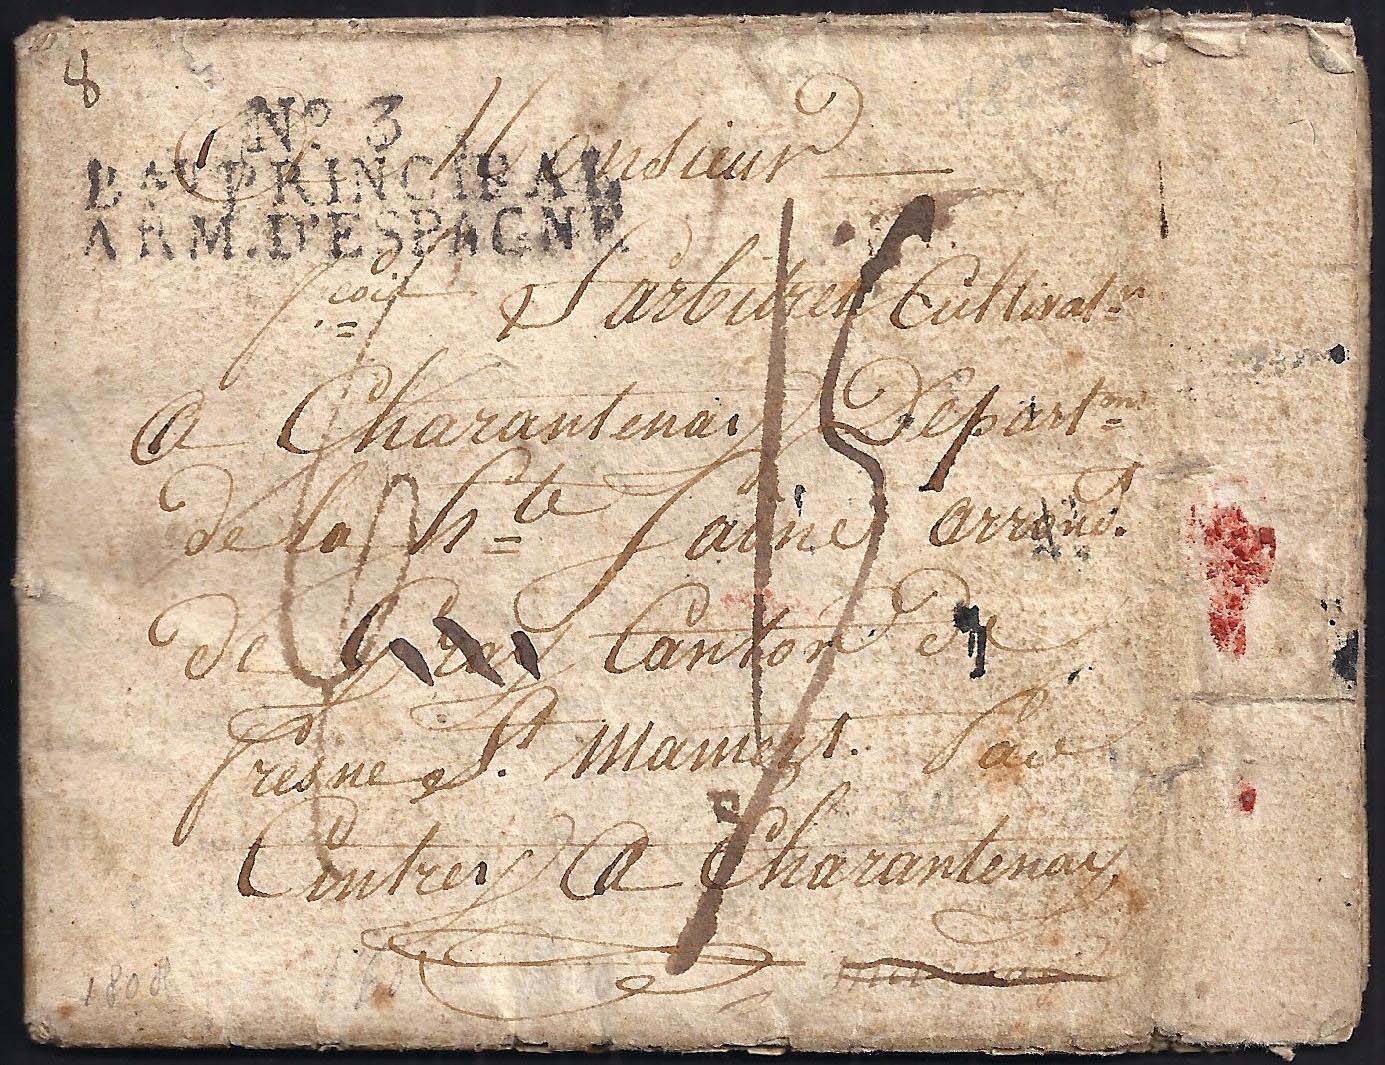 8
No. 3
BAU PRINCIPAL
ARM. D'ESPAGNE
A Monsieur
Cultivatr
15
A Charantenay Départmt
de la hte Saône arrond.
de Gray Canton de
fresne St. Mamers. Par
Cintrey A Charantenay
1808